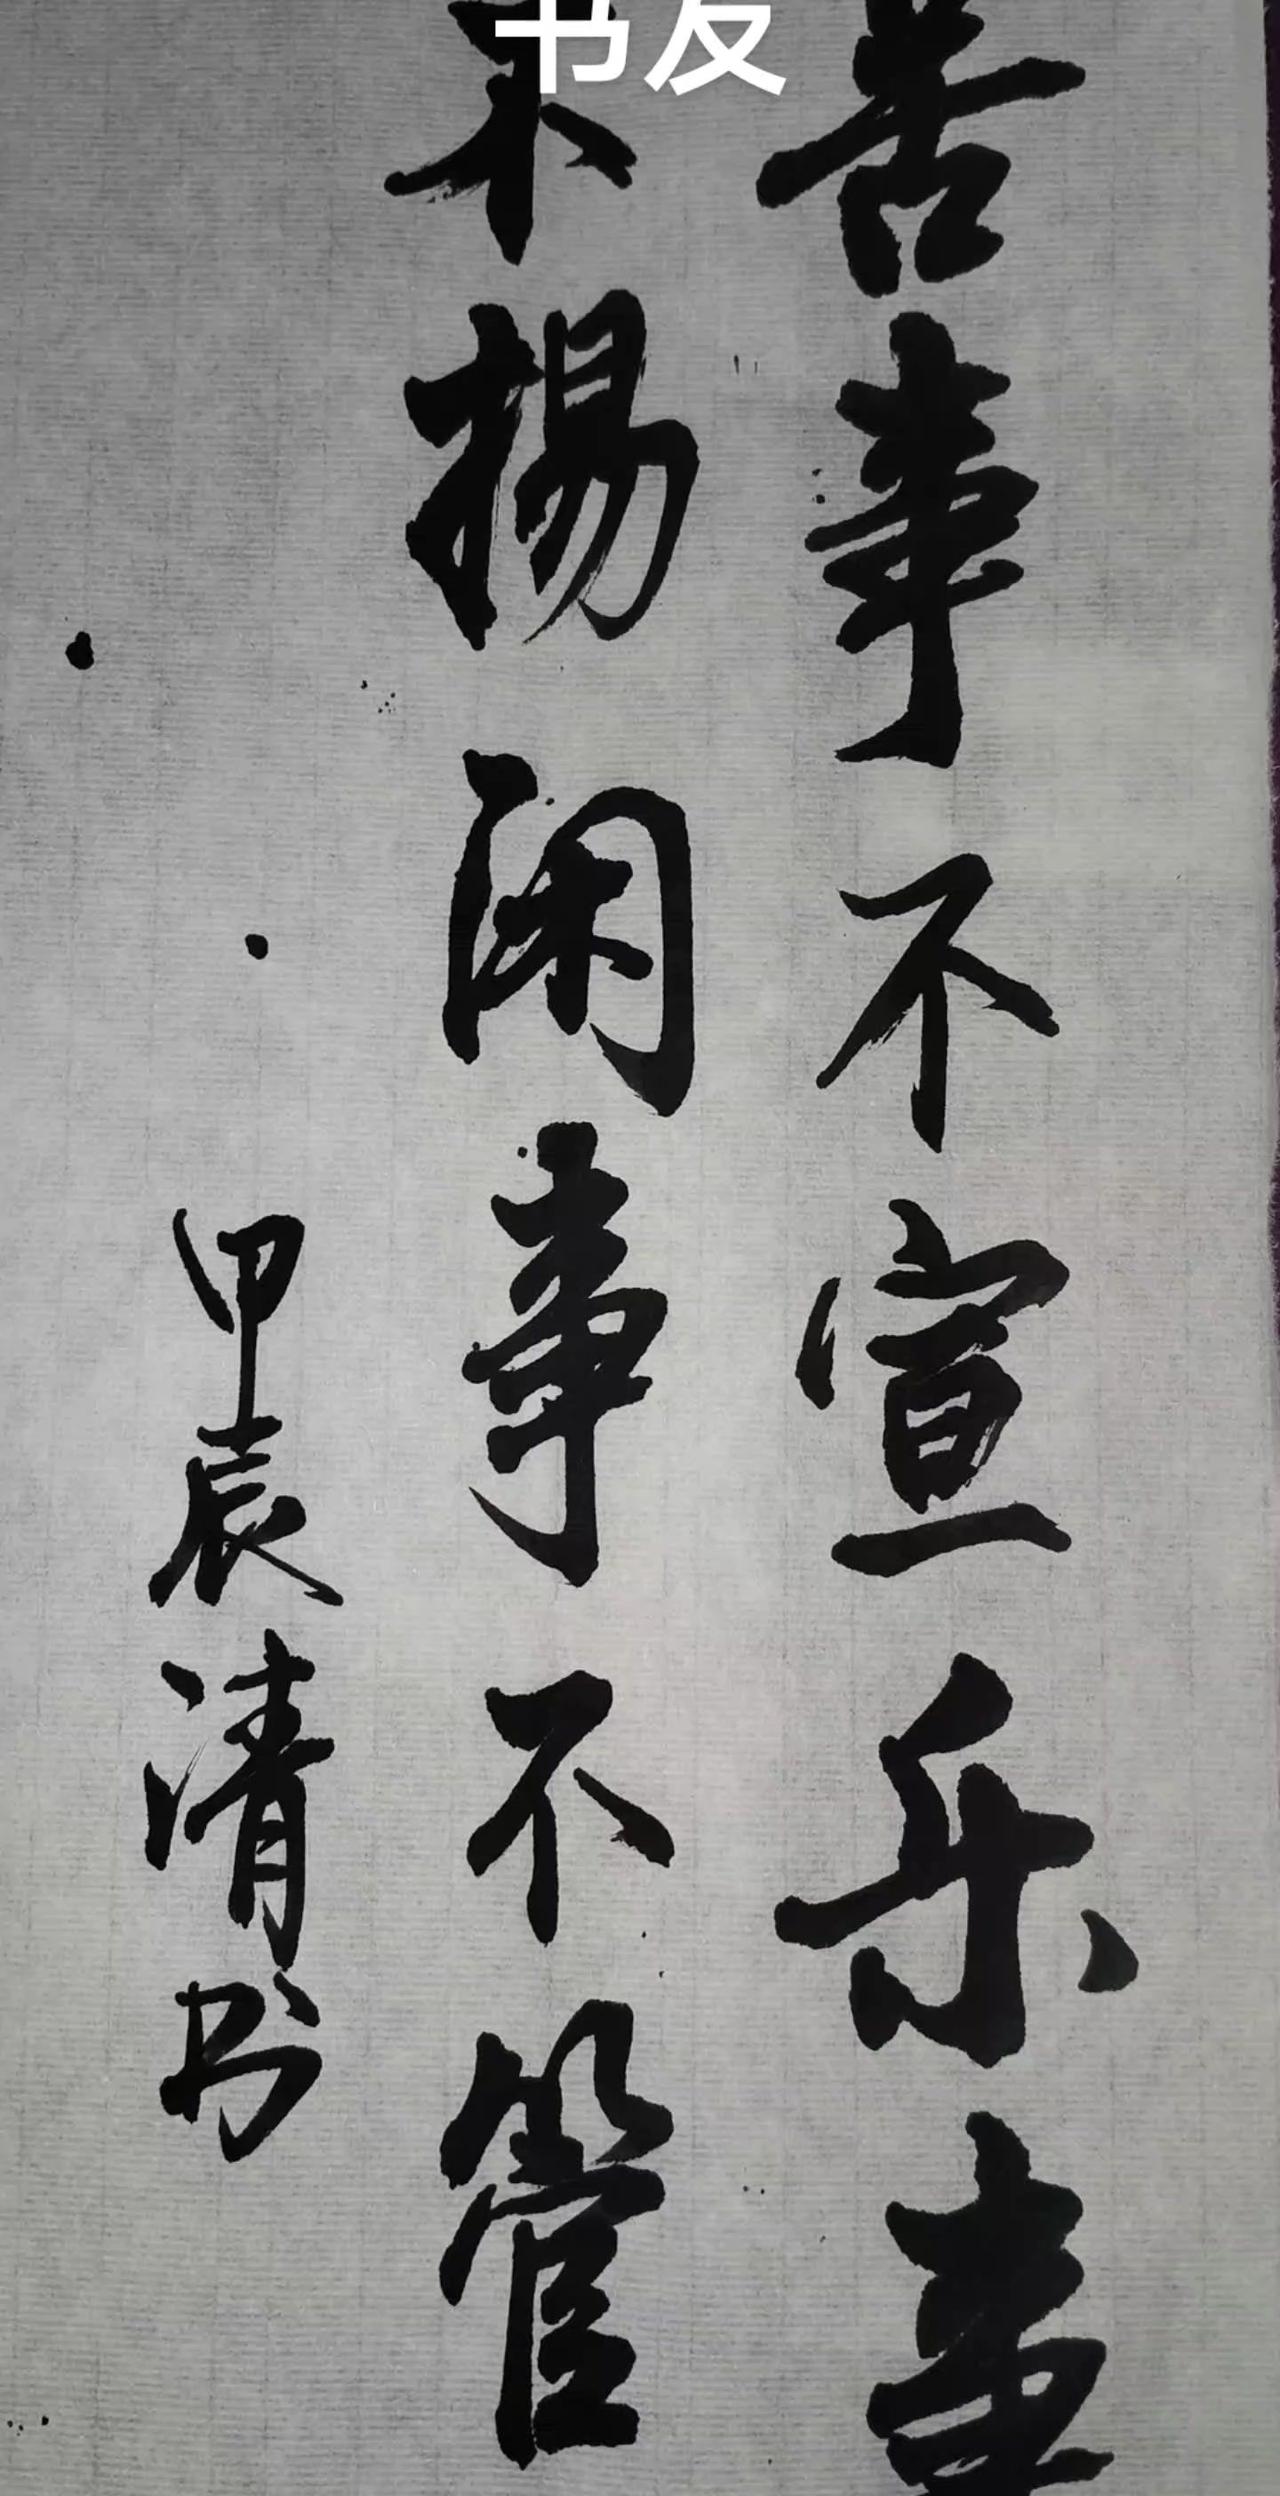 书友
苦事不宣乐事
不揚闲事不管
甲辰清书